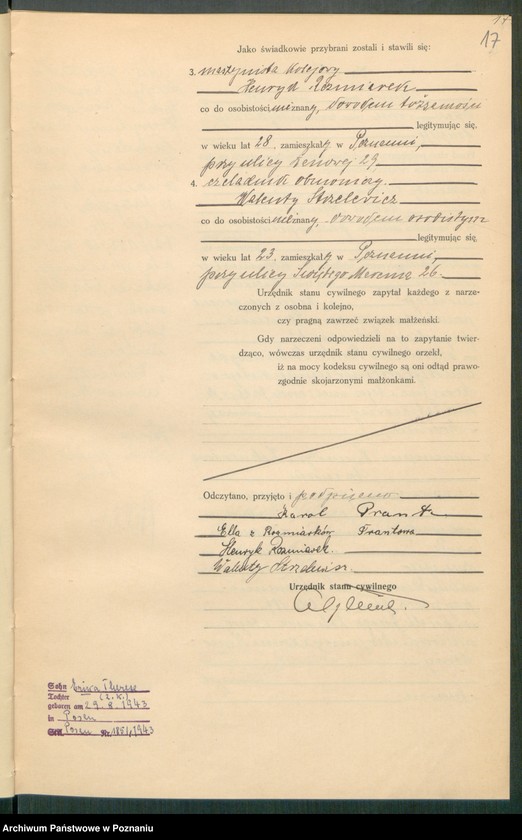 17
Jako świadkowie przybrani zostali i stawili się:
3. maszynista kolejowy
Henryk Rozmiarek
co do osobistości nieznany, dowodem tożsamości
legitymując się,
w wieku lat 28, zamieszkały w Poznaniu,
przy ulicy 29,
4. czeladnik
Walenty Strzelewicz
co do osobistości nieznany, dowodem osobistym
legitymując się,
w wieku lat 23, zamieszkały w Poznaniu,
przy ulicy Świętego Marcina 26.
Urzędnik stanu cywilnego zapytał każdego z narze-
czonych z osobna i kolejno,
czy pragną zawrzeć związek małżeński.
Gdy narzeczeni odpowiedzieli na to zapytanie twier-
dząco, wówczas urzędnik stanu cywilnego orzekł,
iż na mocy kodeksu cywilnego są oni odtąd prawo-
zgodnie skojarzonymi małżonkami.
Odczytano, przyjęto i podpisano
Karol
Ella z
Henryk Rozmiarek.
Walenty
Urzędnik stanu cywilnego
Sohn Therese
Tochter (2. K.)
geboren am 29.8.1943
in Posen
StA. Posen Nr. /1943
Archiwum Państwowe w Poznaniu